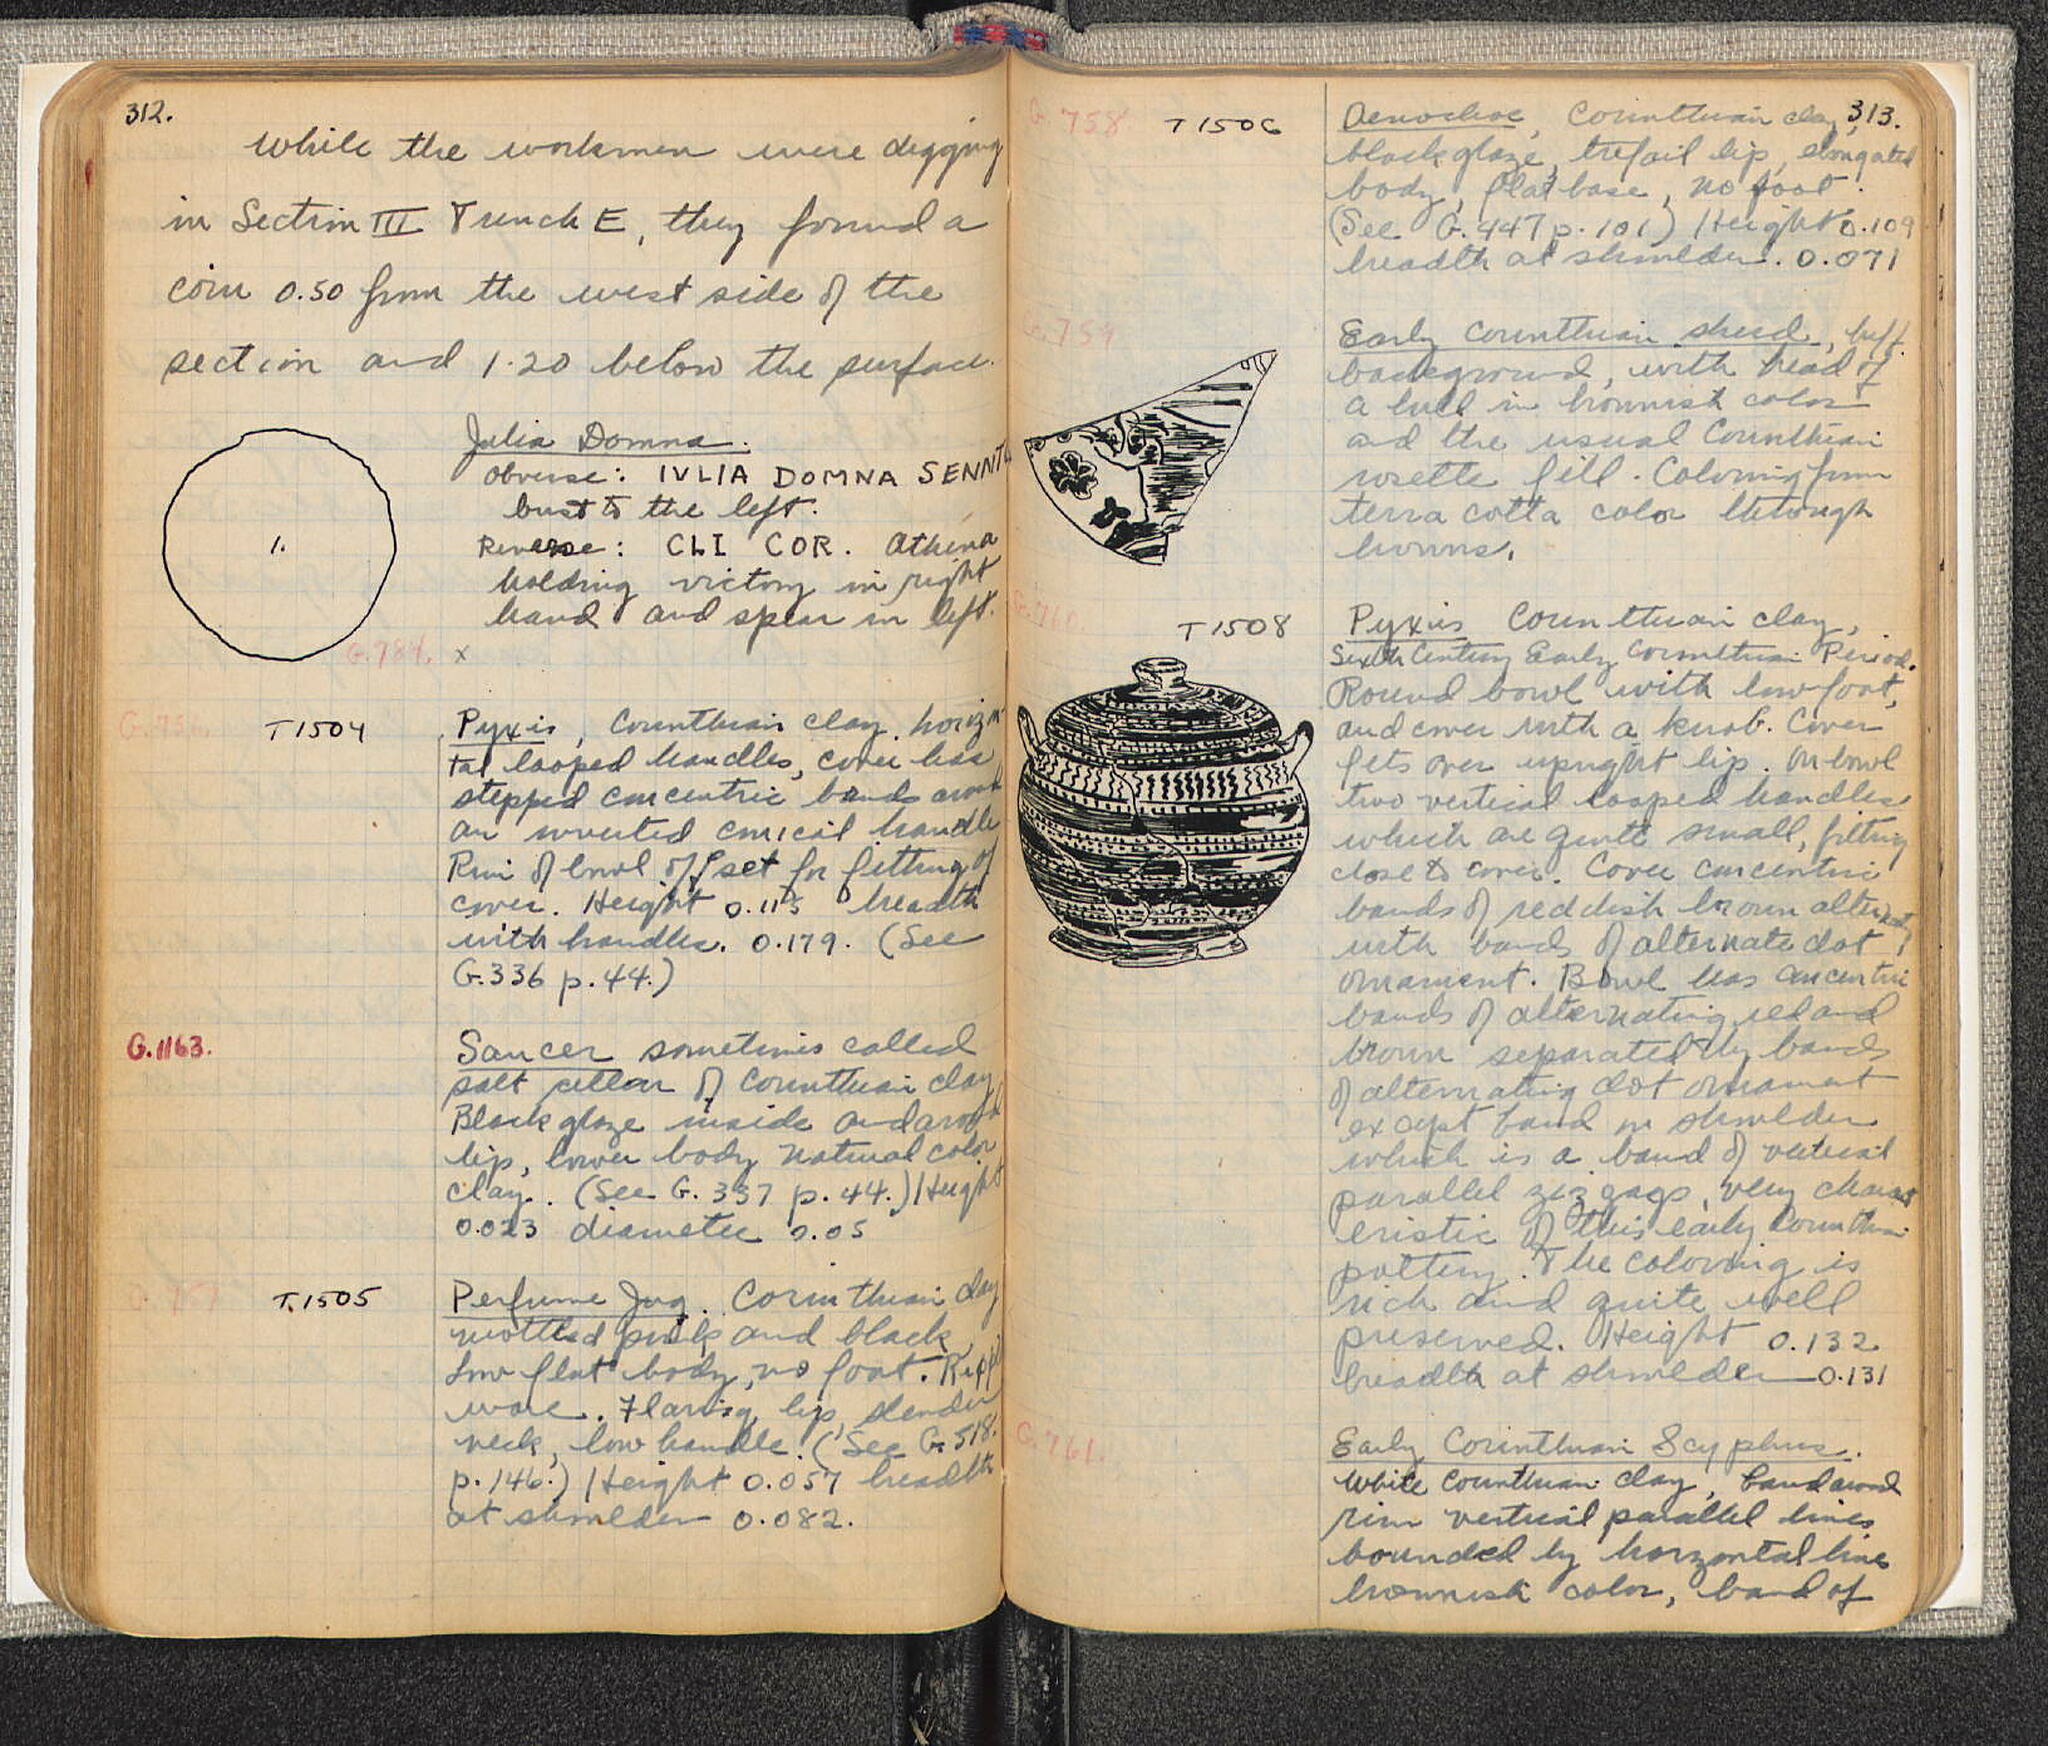 312.
While the workmen were digging
in Section III Trench E, they found a
coin 0.50 from the west side of the
section and 1.20 below the surface.
1.
Julia Domna.
Obverse: IVLIA DOMNA SENNTA
bust to the left.
Reverse: CLI COR. Athena
holding victory in right
hand and spear in left.
G.784. x
G.756. T1504
Pyxis, Corinthian clay, horizon-
tal looped handles, cover has
stepped concentric bands around
an inverted conical handle
Rim of bowl offset for fitting of
cover. Height 0.115 breadth
with handles. 0.179. (See
G.336 p.44.)
G.1163.
Saucer sometimes called
salt cellar of Corinthian clay
Black glaze inside and around
lip, lower body natural color
clay. (See G. 337 p.44.) Height
0.023 diameter 0.05
G.757 T.1505
Perfume Jug. Corinthian clay
mottled pink and black
Low flat body, no foot. Ripple
ware. Flaring lip, slender
neck, low handle. (See G.518.
p.146.) Height 0.057 breadth
at shoulder 0.082.
313.
G.758 T1506
Oenochoe, Corinthian clay,
black glaze, trefoil lip, elongated
body, flat base, no foot.
(See G.447 p.101) Height 0.109
breadth at shoulder. 0.071
G.759
Early Corinthian sherd, buff
background, with head of
a bull in brownish color
and the usual Corinthian
rosette fill. Coloring from
terra cotta color through
browns.
G.760. T1508
Pyxis Corinthian clay,
Sixth Century Early Corinthian Period.
Round bowl with low foot,
and cover with a knob. Cover
fits over upright lip. On bowl
two vertical looped handles
which are quite small, fitting
close to cover. Cover concentric
bands of reddish brown alternating
with bands of alternate dot
ornament. Bowl has concentric
bands of alternating red and
brown separated by bands
of alternating dot ornament
except band on shoulder
which is a band of vertical
parallel zig zags, very charact
eristic of this early Corinthian
pottery. The coloring is
rich and quite well
preserved. Height 0.132
breadth at shoulder 0.131
G.761.
Early Corinthian Scyphus.
White Corinthian clay, band around
rim vertical parallel lines
bounded by horizontal lines
brownish color, band of